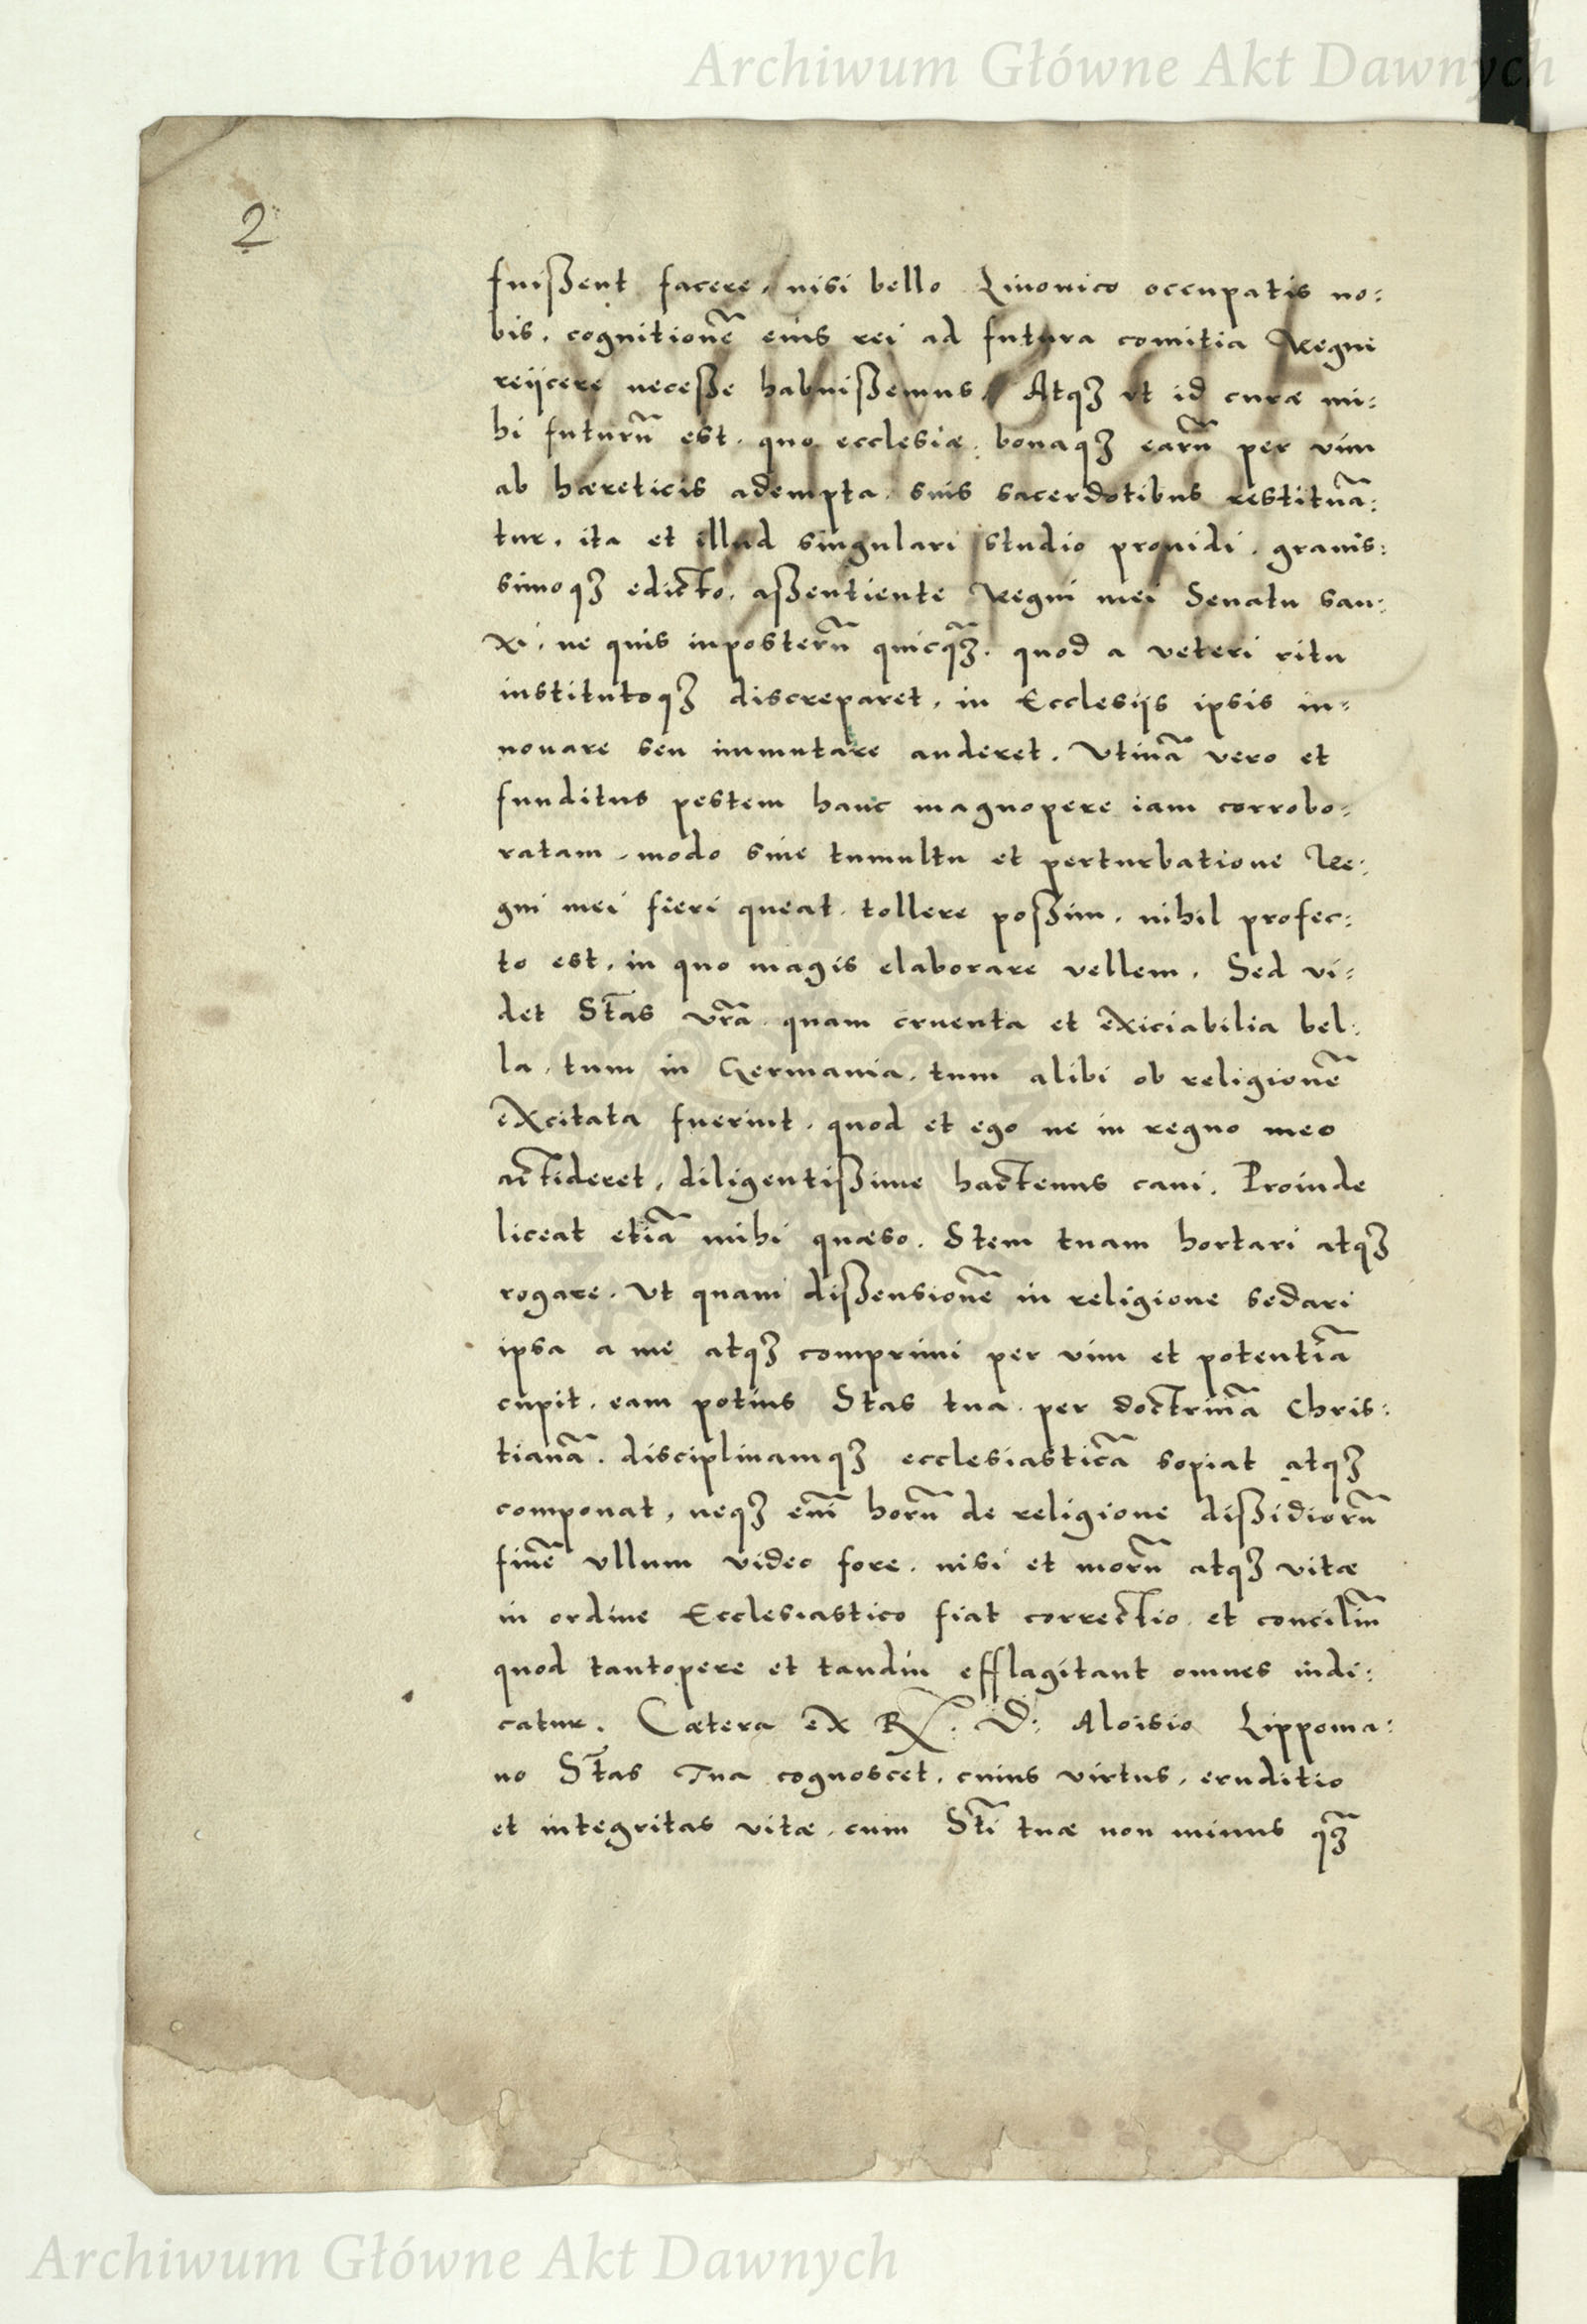 Archiwum Główne Akt Dawnych
2
fuißent facere, nisi bello Liuonico occupatis no:
bis, cognitionē eius rei ad futura comitia Regni
reijcere neceße habuißemus. Atqꝫ vt id curæ mi:
hi futurū est, quo ecclesiæ, bonaqꝫ earū per vim
ab hæreticis adempta, suis sacerdotibus restituā:
tur, ita et illud singulari studio prouidi, grauis:
simoqꝫ edicto, aßentiente Regni mei Senatu san:
xi, ne quis inposterū quicqꝫ̃, quod a veteri ritu
institutoqꝫ discreparet, in Ecclesijs ipsis in:
nouare seu immutare auderet. Vtinā vero et
funditus pestem hanc magnopere iam corrobo:
ratam, modo sine tumultu et perturbatione Re:
gni mei fieri queat, tollere poßim, nihil profec:
to est, in quo magis elaborare vellem. Sed vi:
det S̄tas vr̄a, quam cruenta et exiciabilia bel:
la, tum in Germania, tum alibi ob religionē
excitata fuerint, quod et ego ne in regno meo
accideret, diligentißime hactenus caui. Proinde
liceat etiā mihi quæso, Stem tuam hortari atqꝫ
rogare, Vt quam dißensionē in religione sedari
ipsa a me atqꝫ comprimi per vim et potentiā
cupit, eam potius Stas tua, per doctrinā Chris:
tianā, disciplinamqꝫ ecclesiasticā sopiat atqꝫ
componat, neqꝫ enī horū de religione dißidiorū
finē vllum video fore, nisi et morū atqꝫ vitæ
in ordine Ecclesiastico fiat correctio, et conciliū
quod tantopere et tandiu efflagitant omnes indi:
catur. Cætera ex R. D: Aloisio Lippoma:
no S̄tas Tua cognoscet, cuius virtus, eruditio
et integritas vitæ, cum S̄ti tuæ non minus qꝫ̃
Archiwum Główne Akt Dawnych